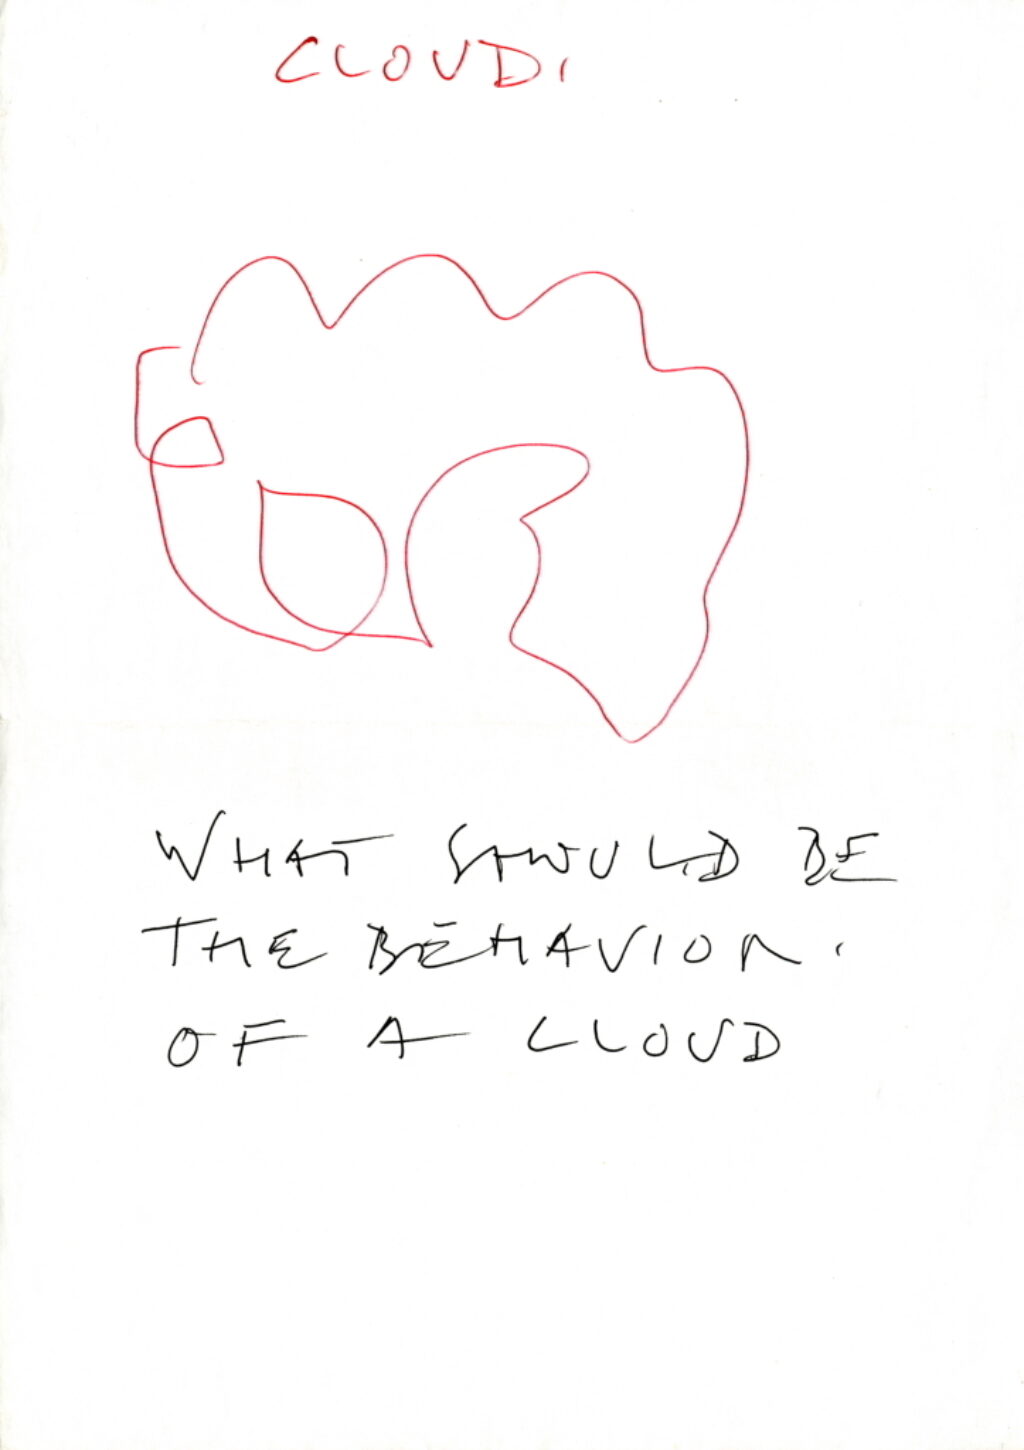 CLOUD.
WHAT SHOULD BE
THE BEHAVIOR.
OF A CLOUD